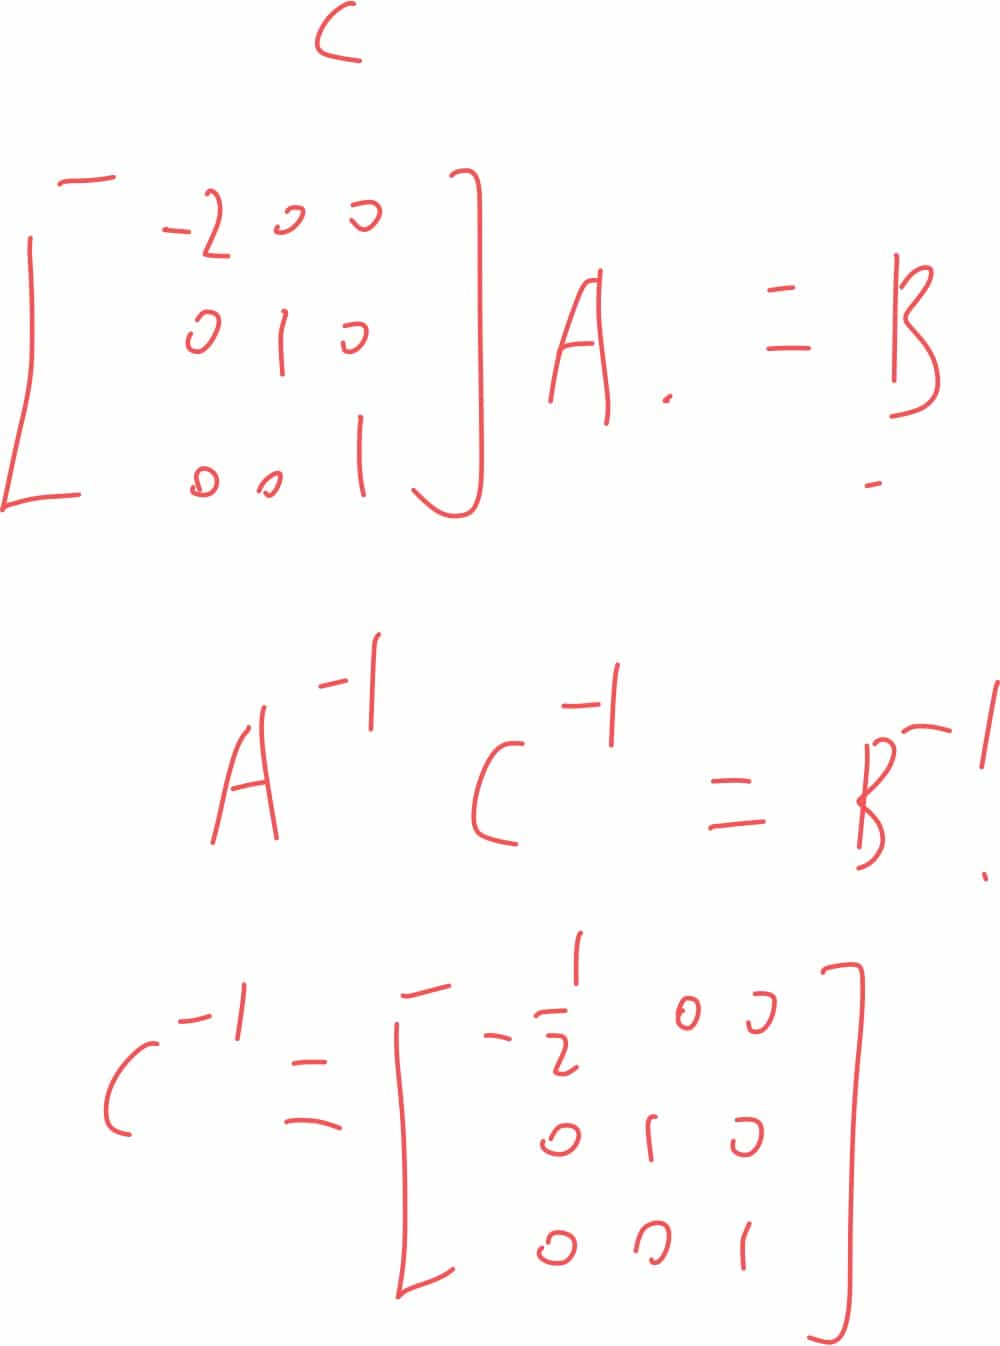 C
[ -2 0 0
0 1 0
0 0 1 ] A . = B
A^-1 C^-1 = B^-1.
C^-1 = [ -1/2 0 0
0 1 0
0 0 1 ]